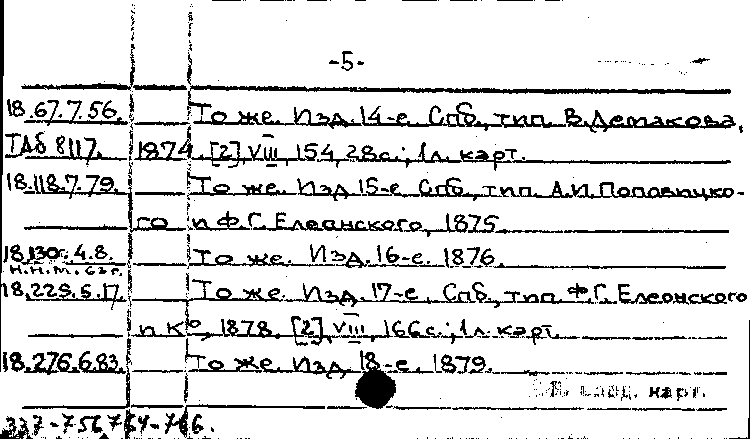 -5-
18.67.7.56. То же. Изд. 14-е. Спб., тип. В. Демакова,
ТАБ 8117. 1874. [2], VIII, 154, 28 с.; 1 л. карт.
18.118.7.79. То же. Изд. 15-е. Спб., тип. А.И. Поповицко-
го и Ф.Г. Елеонского, 1875.
18.130.4.8. То же. Изд. 16-е. 1876.
Н.Н.М. 62 г.
18.229.5.17. То же. Изд. 17-е. Спб., тип. Ф.Г. Елеонского
и К°, 1878. [2], VIII, 166 с.; 1 л. карт.
18.276.6.83. То же. Изд. 18-е. 1879.
карт.
337-756,764-766.